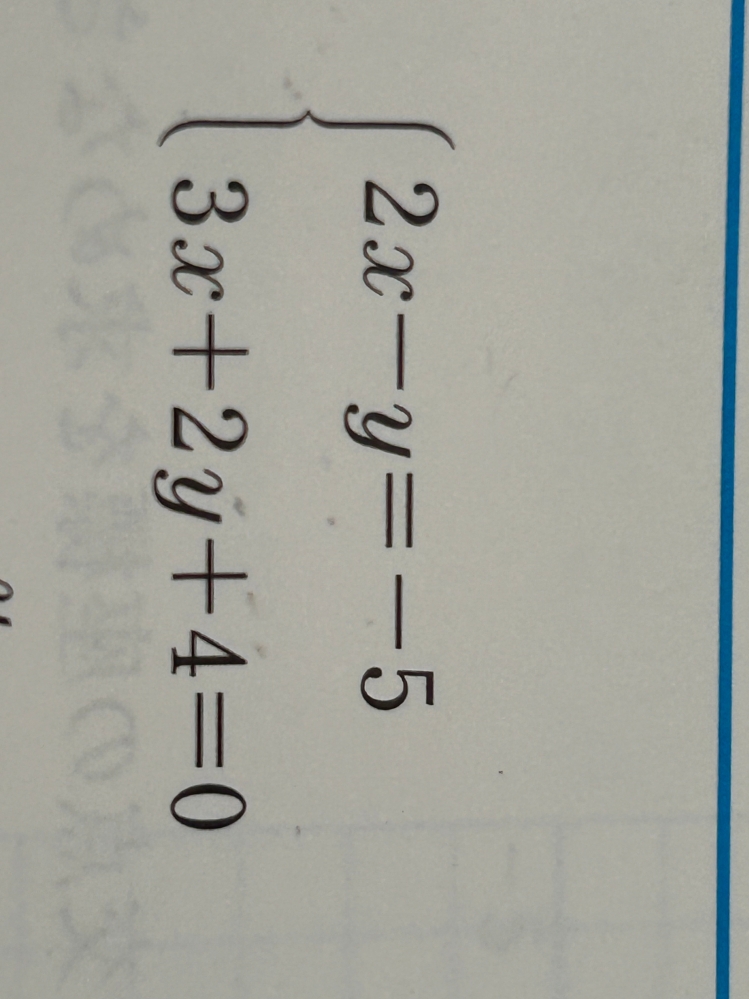 2x−y=−5
3x+2y+4=0